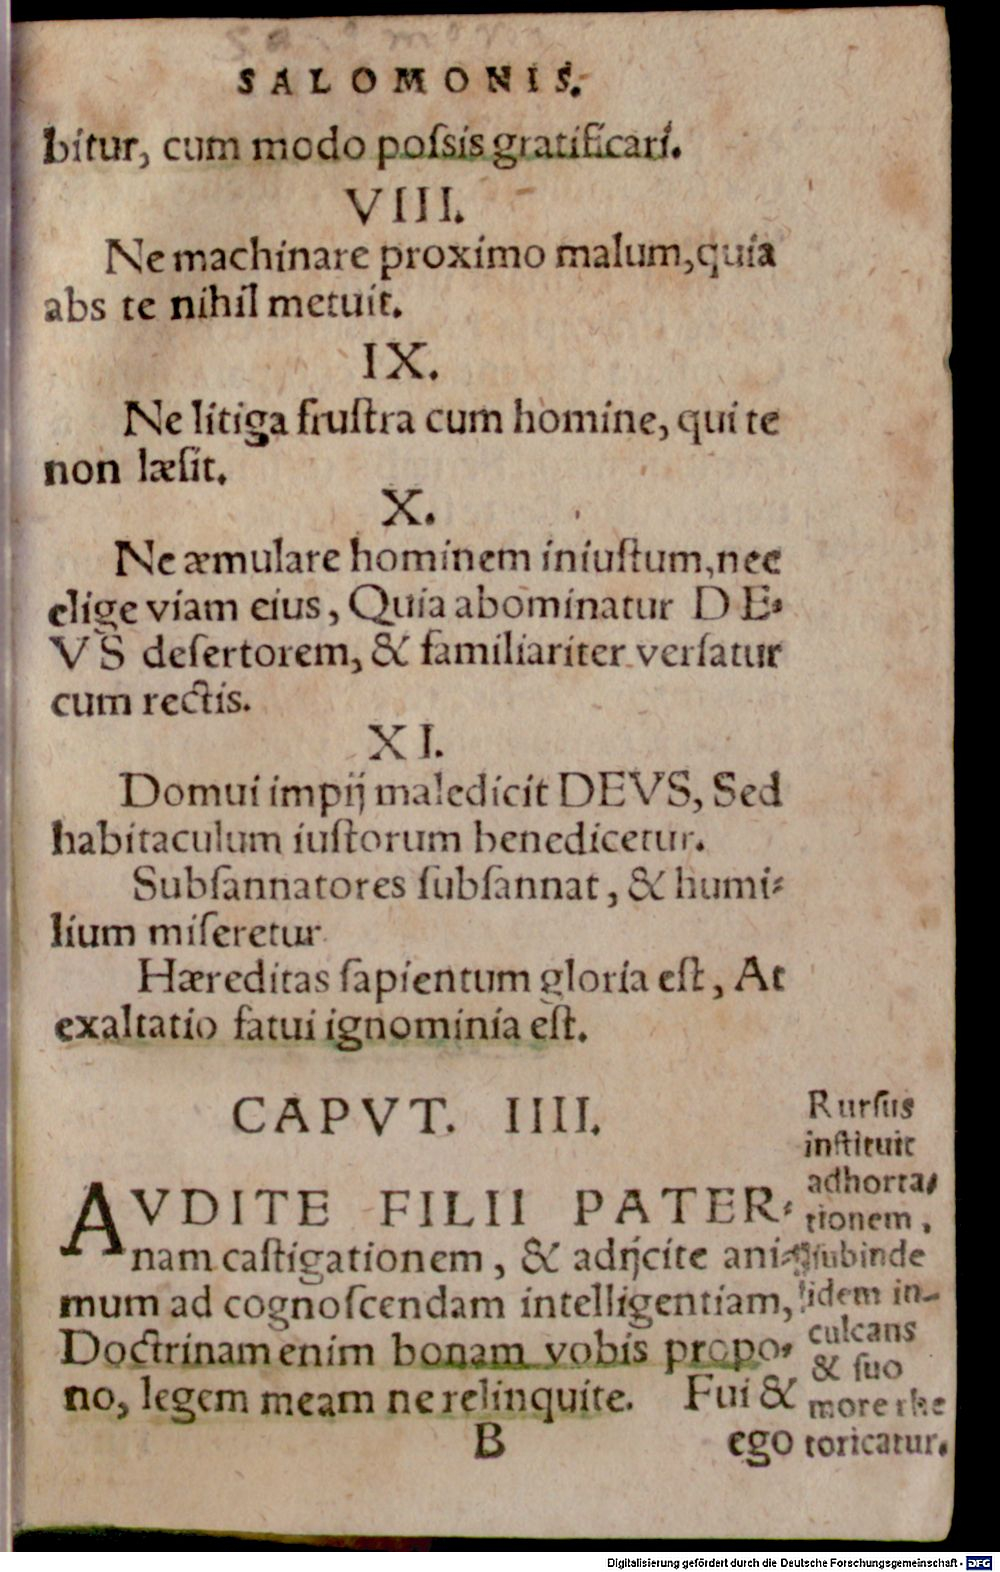 SALOMONIS.
bitur, cum modo poſsis gratificari.
VIII.
Ne machinare proximo malum, quia
abs te nihil metuit.
IX.
Ne litiga fruſtra cum homine, qui te
non læſit.
X.
Ne æmulare hominem iniuſtum, nec
elige viam eius, Quia abominatur DE⸗
VS deſertorem, & familiariter verſatur
cum rectis.
XI.
Domui impij maledicit DEVS, Sed
habitaculum iuſtorum benedicetur.
Subſannatores ſubſannat, & humi⸗
lium miſeretur
Hæreditas ſapientum gloria eſt, At
exaltatio fatui ignominia eſt.
CAPVT. IIII.
AVDITE FILII PATER⸗
nam caſtigationem, & adijcite ani⸗
mum ad cognoſcendam intelligentiam,
Doctrinam enim bonam vobis propo⸗
no, legem meam ne relinquite. Fui &
B ego
Rurſus
inſtituit
adhorta⸗
tionem,
ſubinde
idem in⸗
culcans
& ſuo
more rhe
toricatur.
Digitalisierung gefördert durch die Deutsche Forschungsgemeinschaft - DFG